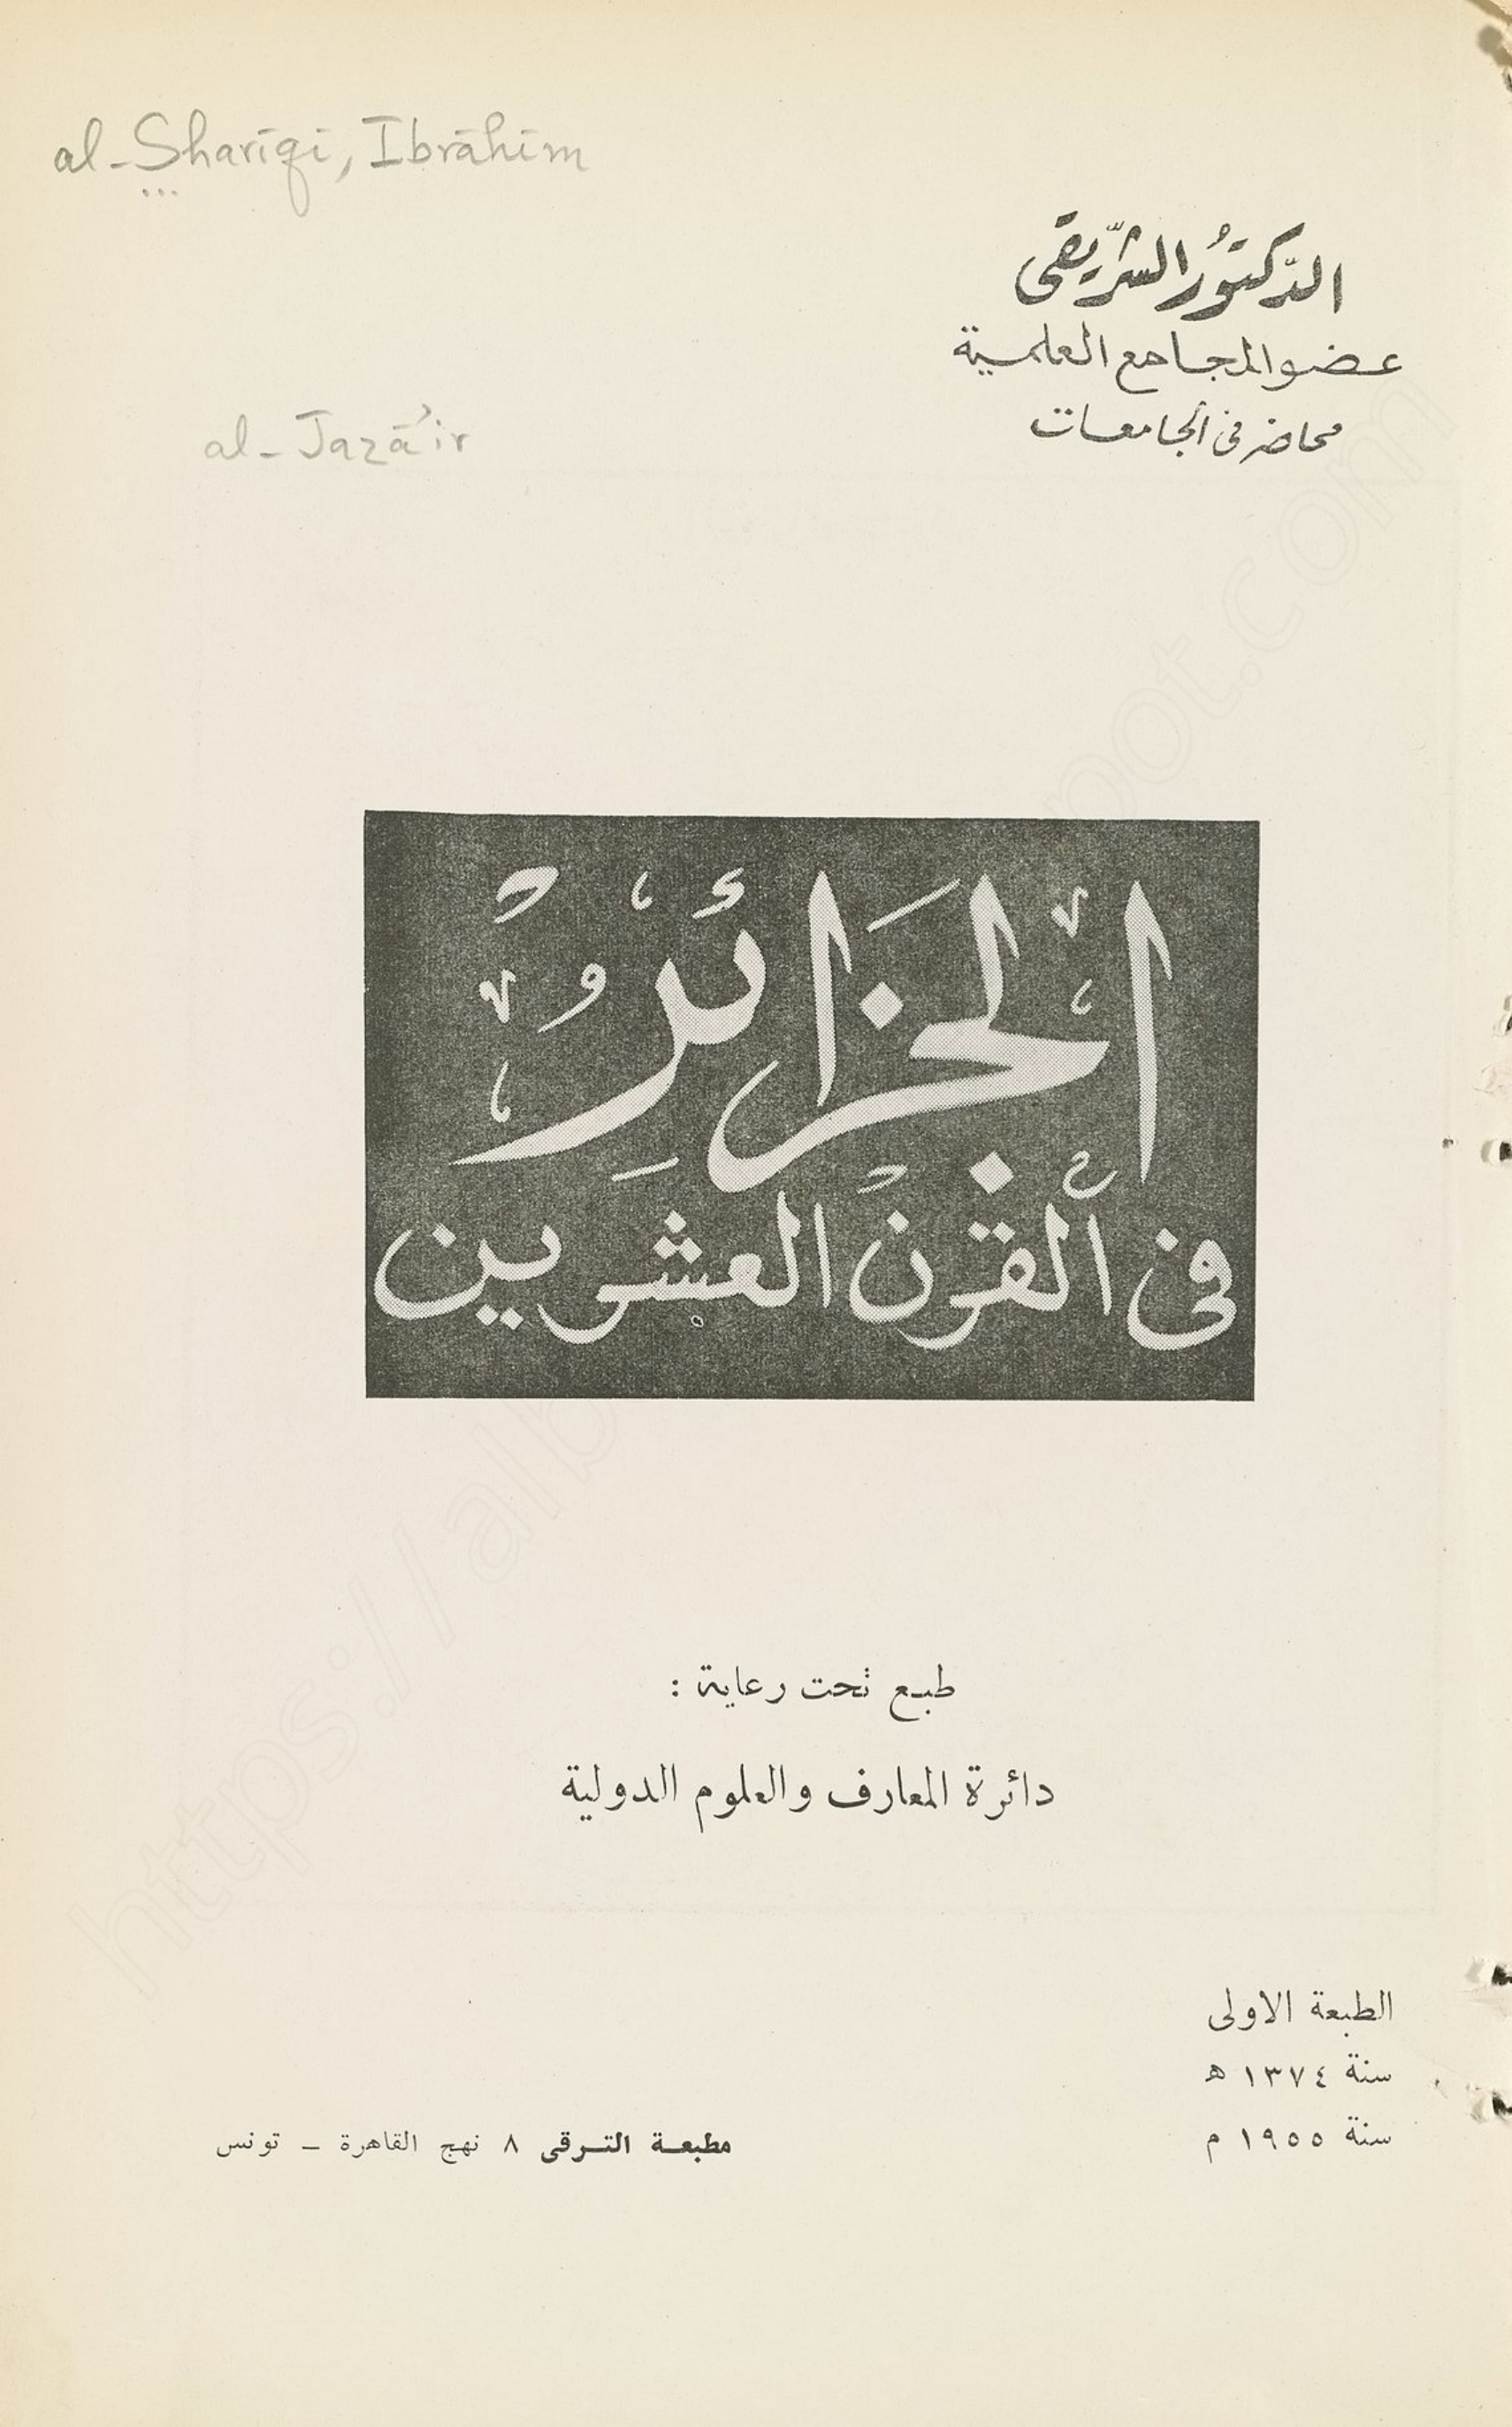 al-Sharīqī, Ibrāhīm
الدّكتُور الشّريقى
عضو المجامع العلمية
محاضر فى الجامعات
al-Jazā'ir
الجَزائِرُ
فى القرن العشرين
طبع تحت رعاية :
دائرة المعارف والعلوم الدولية
الطبعة الاولى
سنة ١٣٧٤ ه
سنة ١٩٥٥ م
مطبعة الترقى ٨ نهج القاهرة – تونس